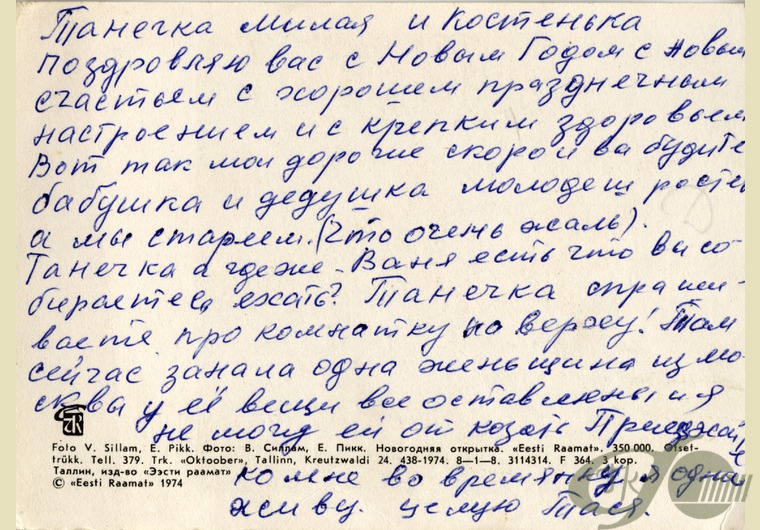 Танечка милая и Костенька
поздровляю вас с Новым Годом с Новым
счастьем с хорошем празднечным
настроением и с крепким здоровьем
Вот так мои дорогие скоро и вы будите
бабушка и дедушка молодеш ростет
а мы стареем. (Что очень жаль).
Танечка а где же - Ваня есть что вы со-
бираетесь ехать? Танечка спраши-
ваете про комнатку на верху! Там
сейчас заняла одна женьщина из мо-
сквы у её вещи все оставлены и я
не могу ей от козать Приезжайте
Foto V. Sillam, E. Pikk. Фото: В. Силлам, Е. Пикк. Новогодняя открытка. «Eesti Raamat». 350 000. Ofset-
trükk. Tell. 379. Trk. «Oktoober», Tallinn, Kreutzwaldi 24. 438-1974. 8—1—8. 3114314. F 364. 3 коp.
Таллин, изд-во «Ээсти раамат»
© «Eesti Raamat» 1974
ко мне во времянку я одна
живу. целую Тася.